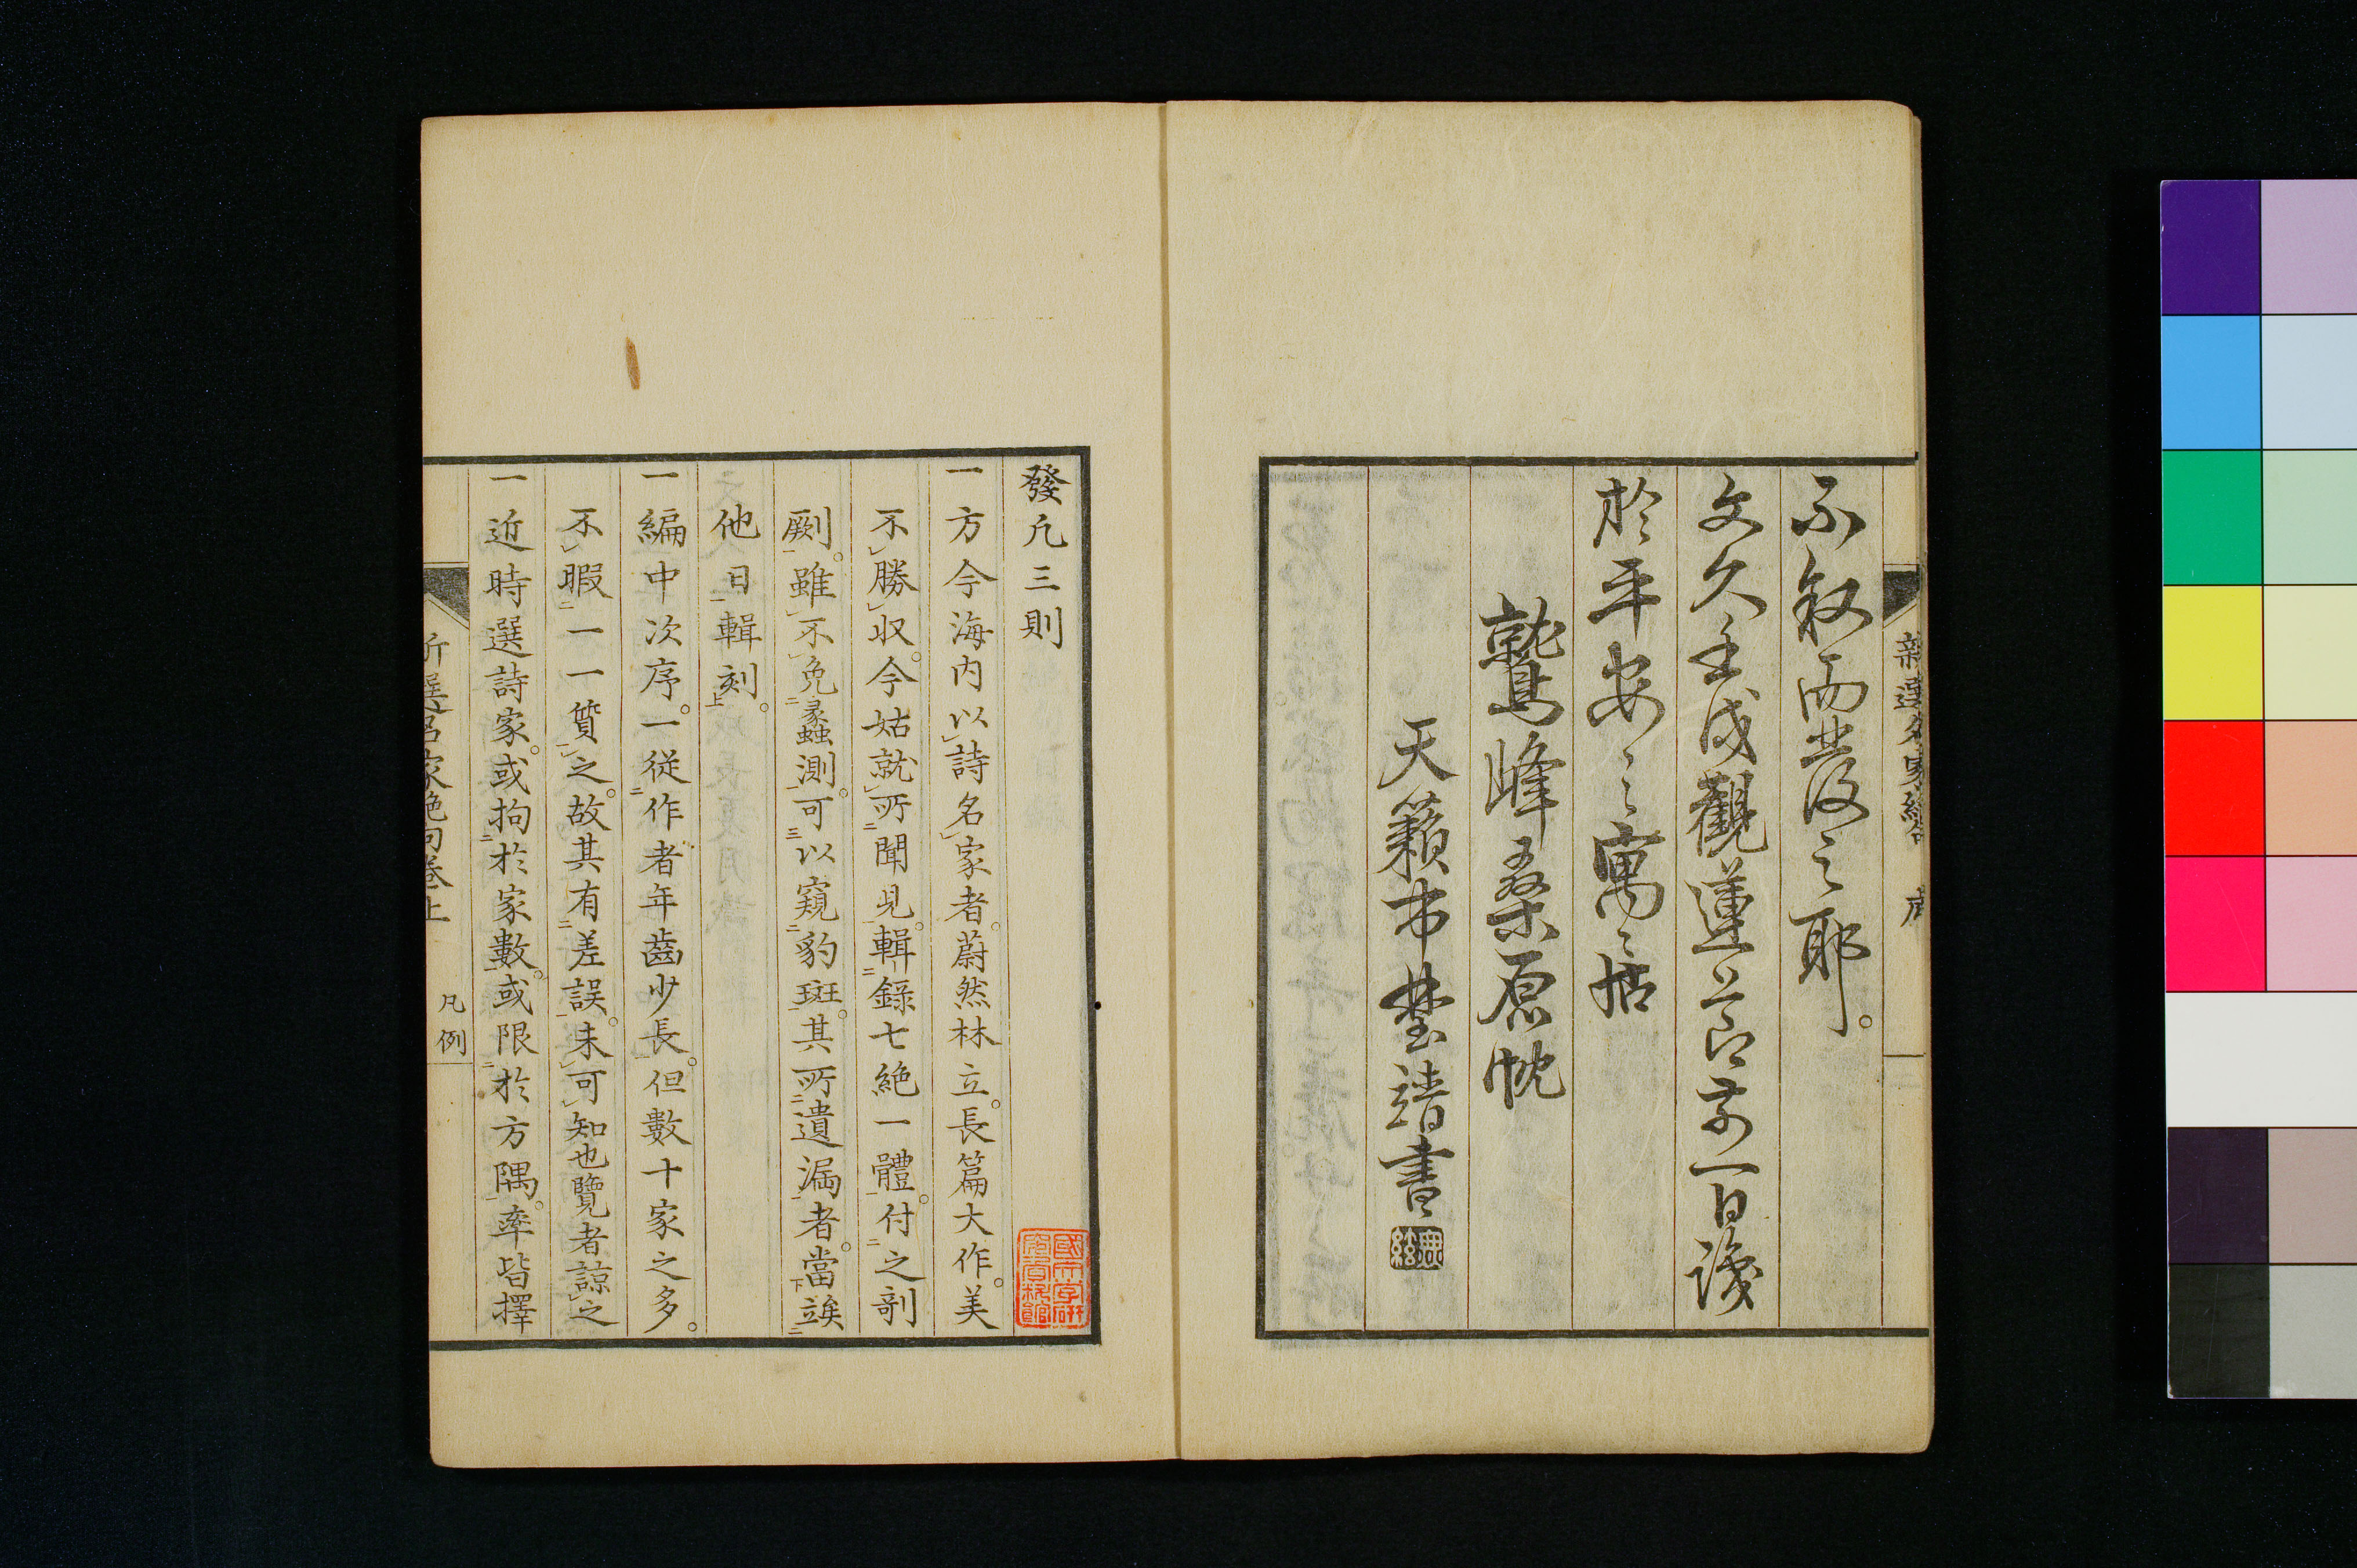 不叙而發之耶。
文久壬戌觀蓮節前一日識
於平安之寓居
鷲峰桑原忱
天籟市埜靖書
新選名家絶句 序
發凡三則
一方今海内以詩名家者。蔚然林立。長篇大作。美
不勝收。今姑就所聞見。輯錄七絶一體。付之剞
劂。雖不免蠡測。可以窺豹斑。其所遺漏者。當竢
他日輯刻。
一編中次序。一從作者年齒少長。但數十家之多。
不暇一一質之。故其有差誤。未可知也覽者諒之
一近時選詩家。或拘於家數。或限於方隅。率皆擇
新選名家絶句卷上 凡例